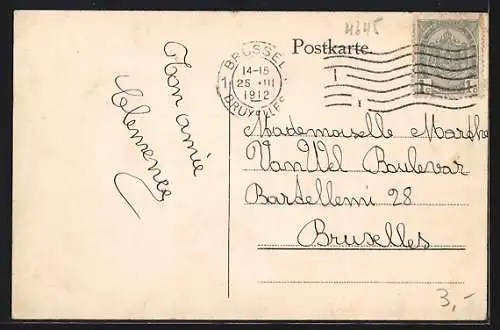 4645
Postkarte.
BRUSSEL
1
14-15
25 III
1912
BRUXELLES
1c 1c
Ton amie
Clemence
Mademoiselle Marthe
VanWel Boulevar
Bartellemi 28
Bruxelles
3,-